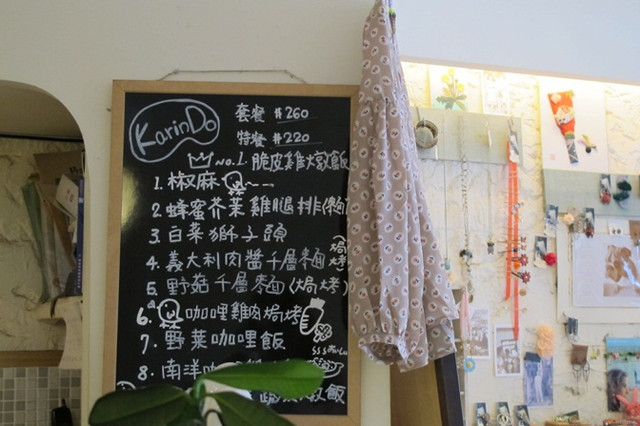 KarinDo
套餐 $260
特餐 $220
NO.1. 脆皮雞大墩飯
1. 椒麻
2. 蜂蜜芥茉雞腿排
3. 白菜獅子頭
4. 義大利肉醬千層麵
焗烤
5. 野菇千層麵(焗烤)
6. 咖哩雞肉焗烤
7. 野菜咖哩飯
8. 南洋
飯